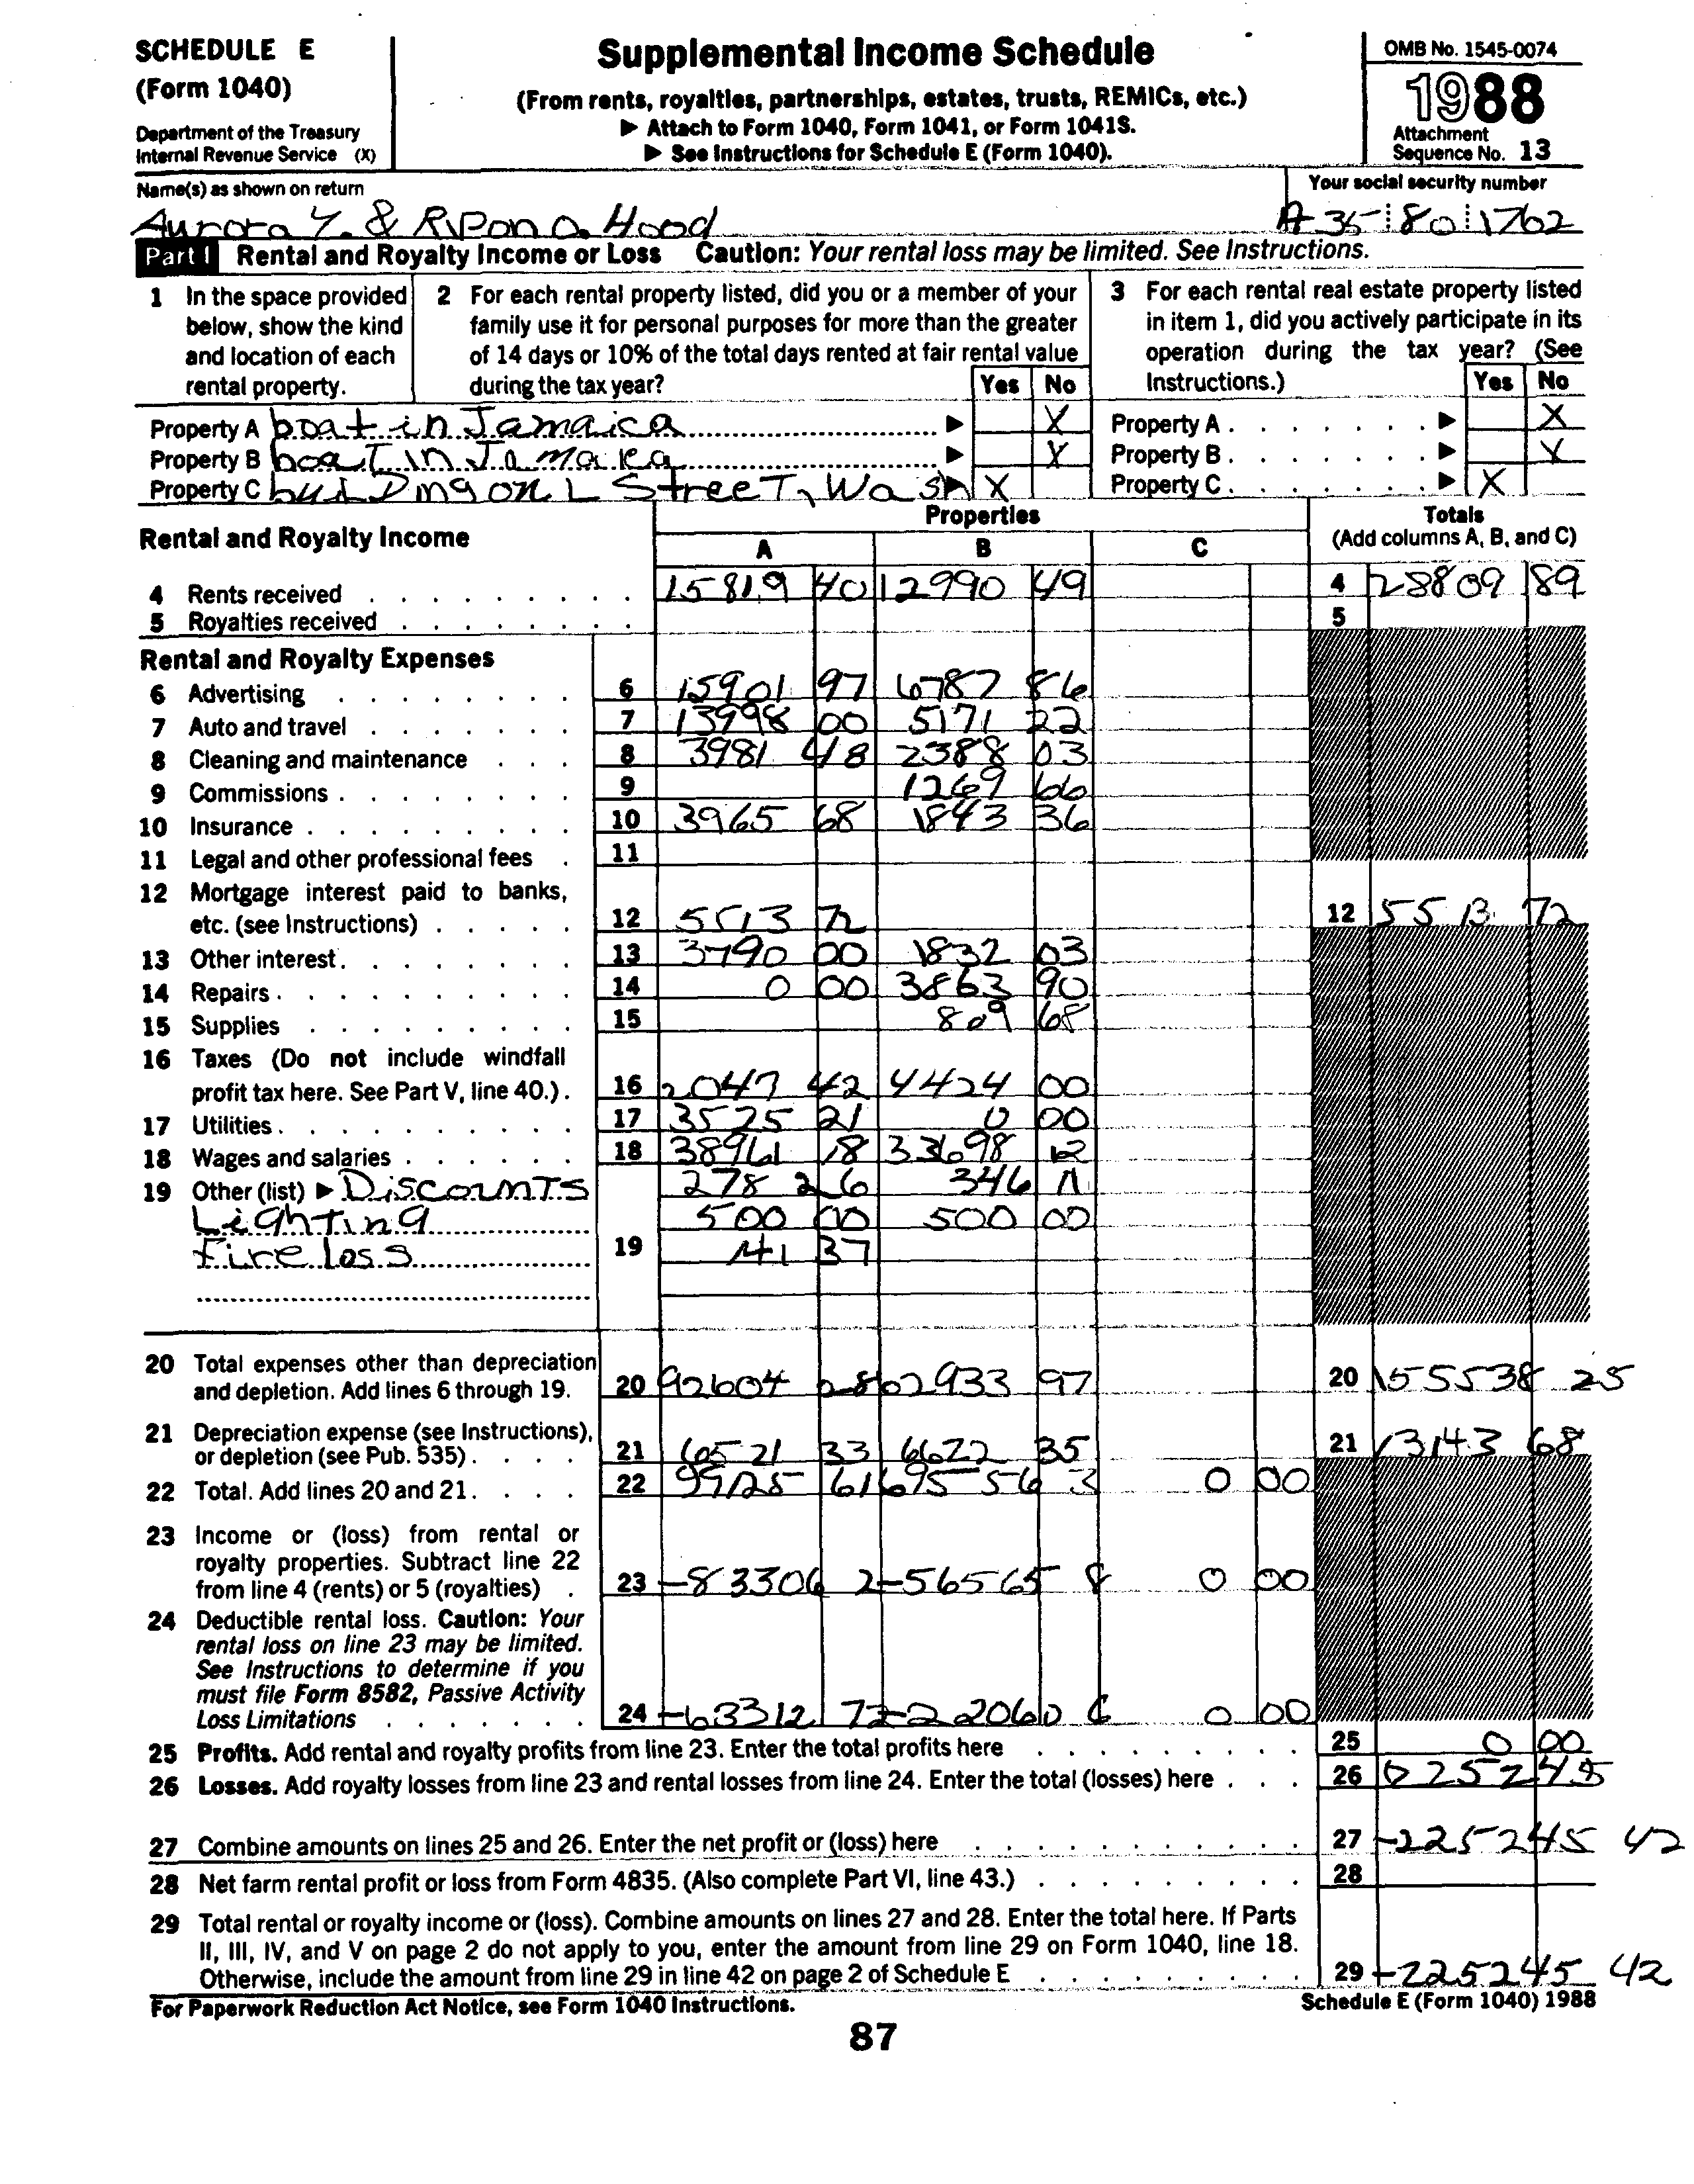 SCHEDULE E
(Form 1040)
Department of the Treasury
Internal Revenue Service (X)
Supplemental Income Schedule
(From rents, royalties, partnerships, estates, trusts, REMICs, etc.)
▶ Attach to Form 1040, Form 1041, or Form 1041S.
▶ See Instructions for Schedule E (Form 1040).
OMB No. 1545-0074
1988
Attachment
Sequence No. 13
Name(s) as shown on return
Your social security number
Aurora Y. & Ripon O. Hood
80 1762
Part I Rental and Royalty Income or Loss Caution: Your rental loss may be limited. See Instructions.
1 In the space provided below, show the kind and location of each rental property.
2 For each rental property listed, did you or a member of your family use it for personal purposes for more than the greater of 14 days or 10% of the total days rented at fair rental value during the tax year? Yes No
3 For each rental real estate property listed in item 1, did you actively participate in its operation during the tax year? (See Instructions.) Yes No
Property A boat in Jamaica ▶ X Property A ▶ X
Property B boat in Jamaica ▶ X Property B ▶ X
Property C buildingon L Street, Wash ▶ X Property C ▶ X
Rental and Royalty Income
Properties
A B C
Totals
(Add columns A, B, and C)
4 Rents received 15819 40 12990 49 4 28809 89
5 Royalties received 5
Rental and Royalty Expenses
6 Advertising 6 15901 97 6787 86
7 Auto and travel 7 13998 00 5171 22
8 Cleaning and maintenance 8 3981 48 2388 03
9 Commissions 9 1269 66
10 Insurance 10 3965 68 1843 36
11 Legal and other professional fees 11
12 Mortgage interest paid to banks, etc. (see Instructions) 12 5513 72 12 5513 72
13 Other interest 13 3790 00 1832 03
14 Repairs 14 0 00 3863 90
15 Supplies 15 809 68
16 Taxes (Do not include windfall profit tax here. See Part V, line 40.) 16 2047 42 4424 00
17 Utilities 17 3525 21 0 00
18 Wages and salaries 18 38961 18 33698 12
19 Other (list) ▶ Discounts 278 26 346 11
Lighting 500 00 500 00
Fire loss 19 141 37
20 Total expenses other than depreciation and depletion. Add lines 6 through 19. 20 92604 28 62933 97 20 155538 25
21 Depreciation expense (see Instructions), or depletion (see Pub. 535) 21 6521 33 6622 35 21 13143 68
22 Total. Add lines 20 and 21. 22 99125 61 69556 3 0 00
23 Income or (loss) from rental or royalty properties. Subtract line 22 from line 4 (rents) or 5 (royalties) 23 -83306 2 -56565 8 0 00
24 Deductible rental loss. Caution: Your rental loss on line 23 may be limited. See Instructions to determine if you must file Form 8582, Passive Activity Loss Limitations 24 -63312 7 -22060 6 0 00
25 Profits. Add rental and royalty profits from line 23. Enter the total profits here 25 0 00
26 Losses. Add royalty losses from line 23 and rental losses from line 24. Enter the total (losses) here 26
27 Combine amounts on lines 25 and 26. Enter the net profit or (loss) here 27 -225245 42
28 Net farm rental profit or loss from Form 4835. (Also complete Part VI, line 43.) 28
29 Total rental or royalty income or (loss). Combine amounts on lines 27 and 28. Enter the total here. If Parts
II, III, IV, and V on page 2 do not apply to you, enter the amount from line 29 on Form 1040, line 18.
Otherwise, include the amount from line 29 in line 42 on page 2 of Schedule E 29 -225245 42
For Paperwork Reduction Act Notice, see Form 1040 Instructions.
Schedule E (Form 1040) 1988
87